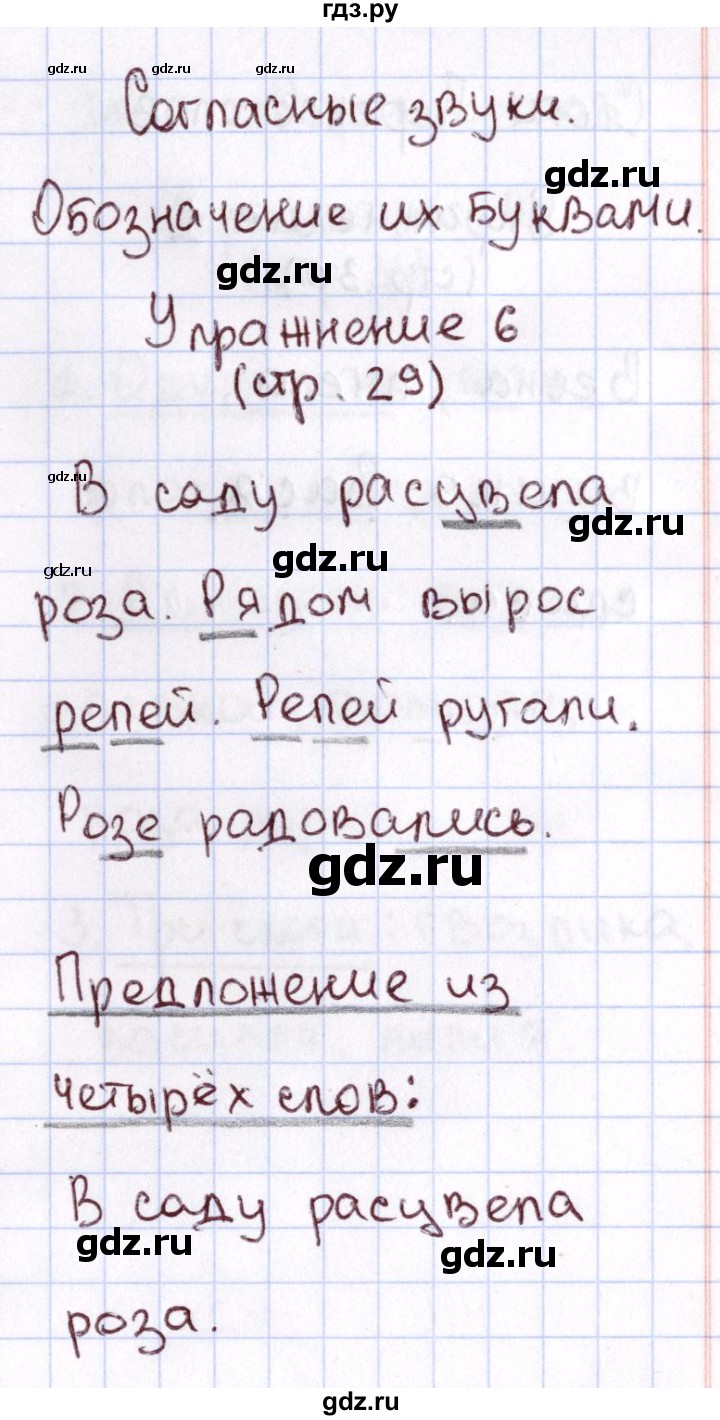 гдз.ру
gdz.ru gdz.ru gdz.ru
Согласные звуки.
gdz.ru
Обозначение их буквами.
gdz.ru
Упражнение 6
(стр. 29)
gdz.ru
В саду расцвела
gdz.ru
gdz.ru
gdz.ru
роза. Рядом вырос
репей. Репей ругали.
Розе радовались.
gdz.ru
Предложение из
четырёх слов:
В саду расцвела
gdz.ru
gdz.ru
роза.
gdz.ru